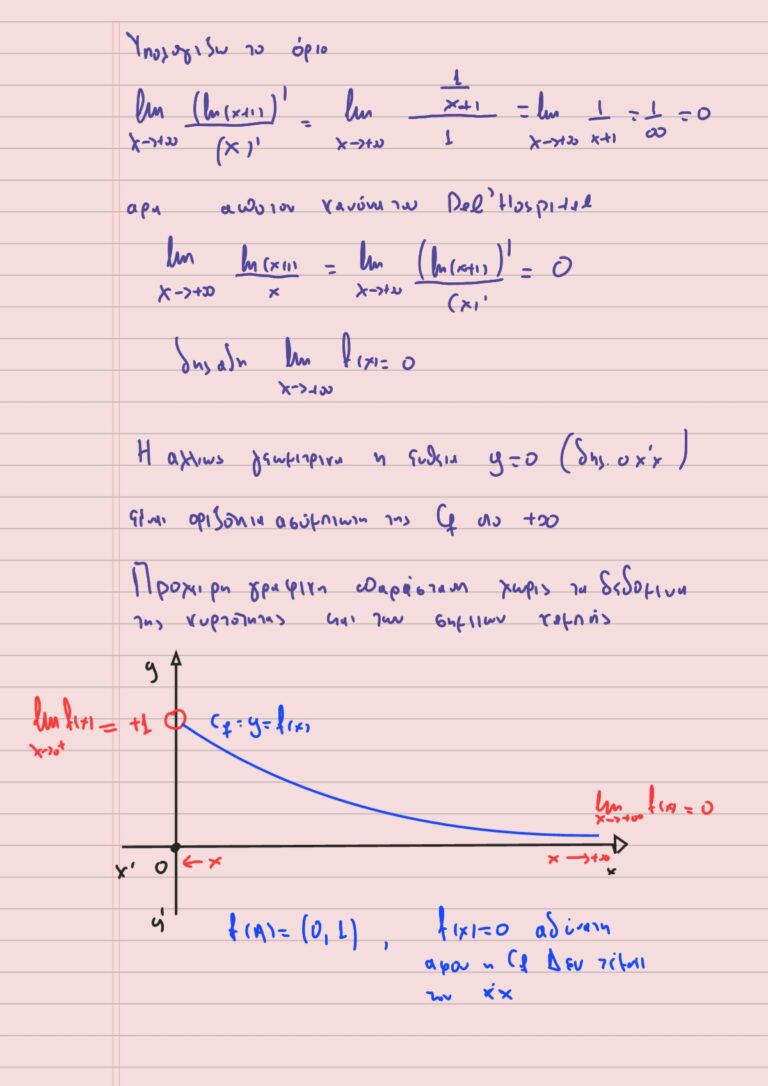 Υπολογιζω το όριο
lim x->+∞ (ln(x+1))' / (x)' = lim x->+∞ (1/(x+1)) / 1 = lim x->+∞ 1/(x+1) = 1/∞ = 0
αρα απο τον κανόνα του Del'Hospital
lim x->+∞ ln(x+1) / x = lim x->+∞ (ln(x+1))' / (x)' = 0
δηλαδη lim x->+∞ f(x) = 0
Η αλλιως γεωμετρικα η ευθεια y=0 (δηλ. ο x'x)
είναι οριζόντια ασύμπτωτη της Cf στο +∞
Προχειρη γραφικη παράσταση χωρις τα δεδομενα
της κυρτότητας και των σημειων καμπής
y
lim x->0+ f(x) = +1
Cf: y=f(x)
lim x->+∞ f(x) = 0
x' 0 ← x x →+∞ x
y'
f(A) = (0,1), f(x)=0 αδύνατη
αφου η Cf Δεν τέμνει
τον x'x